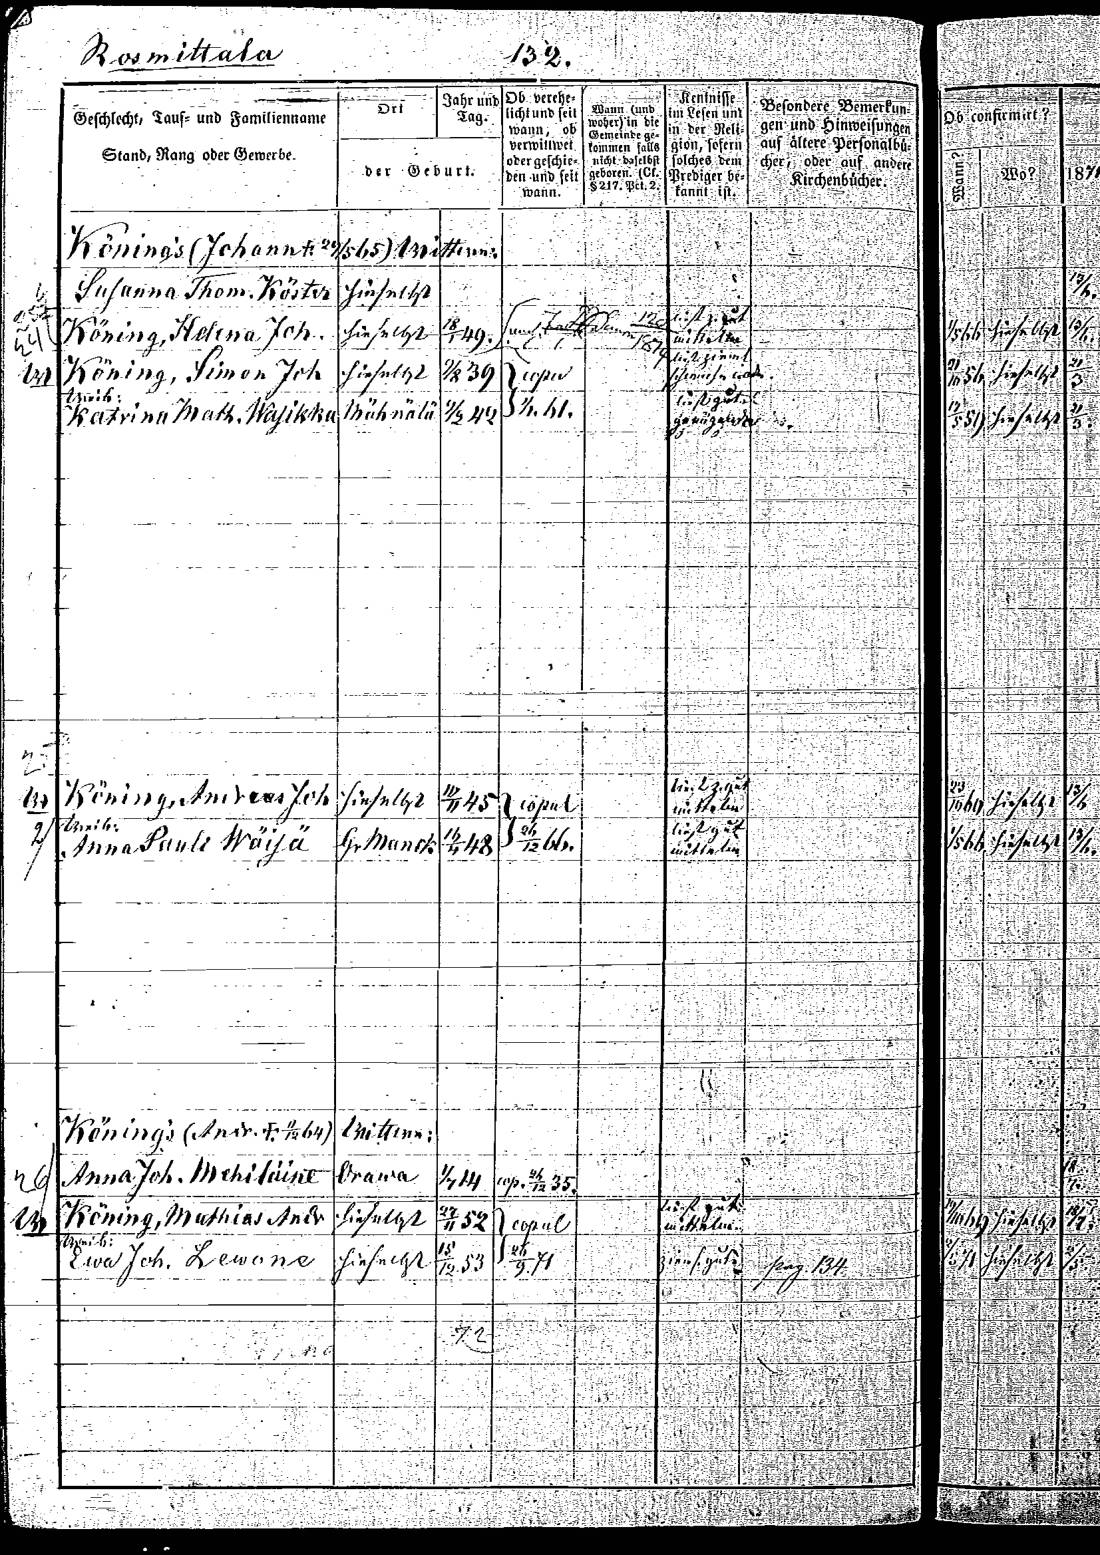 Rosmittala
132.
Geschlecht, Tauf- und Familienname
Stand, Rang oder Gewerbe.
Ort
Jahr und Tag.
der Geburt.
Ob verehe-
licht und seit
wann, ob
verwittwet
oder geschie-
den und seit
wann.
Wann (und
woher) in die
Gemeinde ge-
kommen falls
nicht daselbst
geboren. (Cf.
§ 217. Pct. 2.
Kentnisse
im Lesen und
in der Reli-
gion, sofern
solches dem
Prediger be-
kannt ist.
Besondere Bemerkun-
gen und Hinweisungen
auf ältere Personalbü-
cher, oder auf andere
Kirchenbücher.
Ob confirmirt?
Wann?
Wo?
187
Köning's (Johann † 565) Wittwe:
Susanna Thom. Köster hieselbst
Köning, Helena Joh. hieselbst 49. liest z. gut mittelm
Köning, Simon Joh hieselbst 39 copul 56 hieselbst
Weib:
Katrina Math. Wasikka Mähnälä 42 61. liest gut hieselbst
Köning, Andreas Joh hieselbst 45 copul liest z. gut mittelm hieselbst
Weib:
Anna Pauli Wäisä Gr Manok 16/4 48 26/12 66. liest gut mittelm 566 hieselbst
Köning's (Andr. † 64) Wittwe:
Anna Joh. Mehiläine Orawa 14 cop. 26/12 35.
Köning, Mathias Andr hieselbst 27/11 52 copul liest gut mittelm. hieselbst
Weib:
Ewa Joh. Lewone hieselbst 15/12 53 26/9 71 ziemf. gut pag. 134 71 hieselbst
72